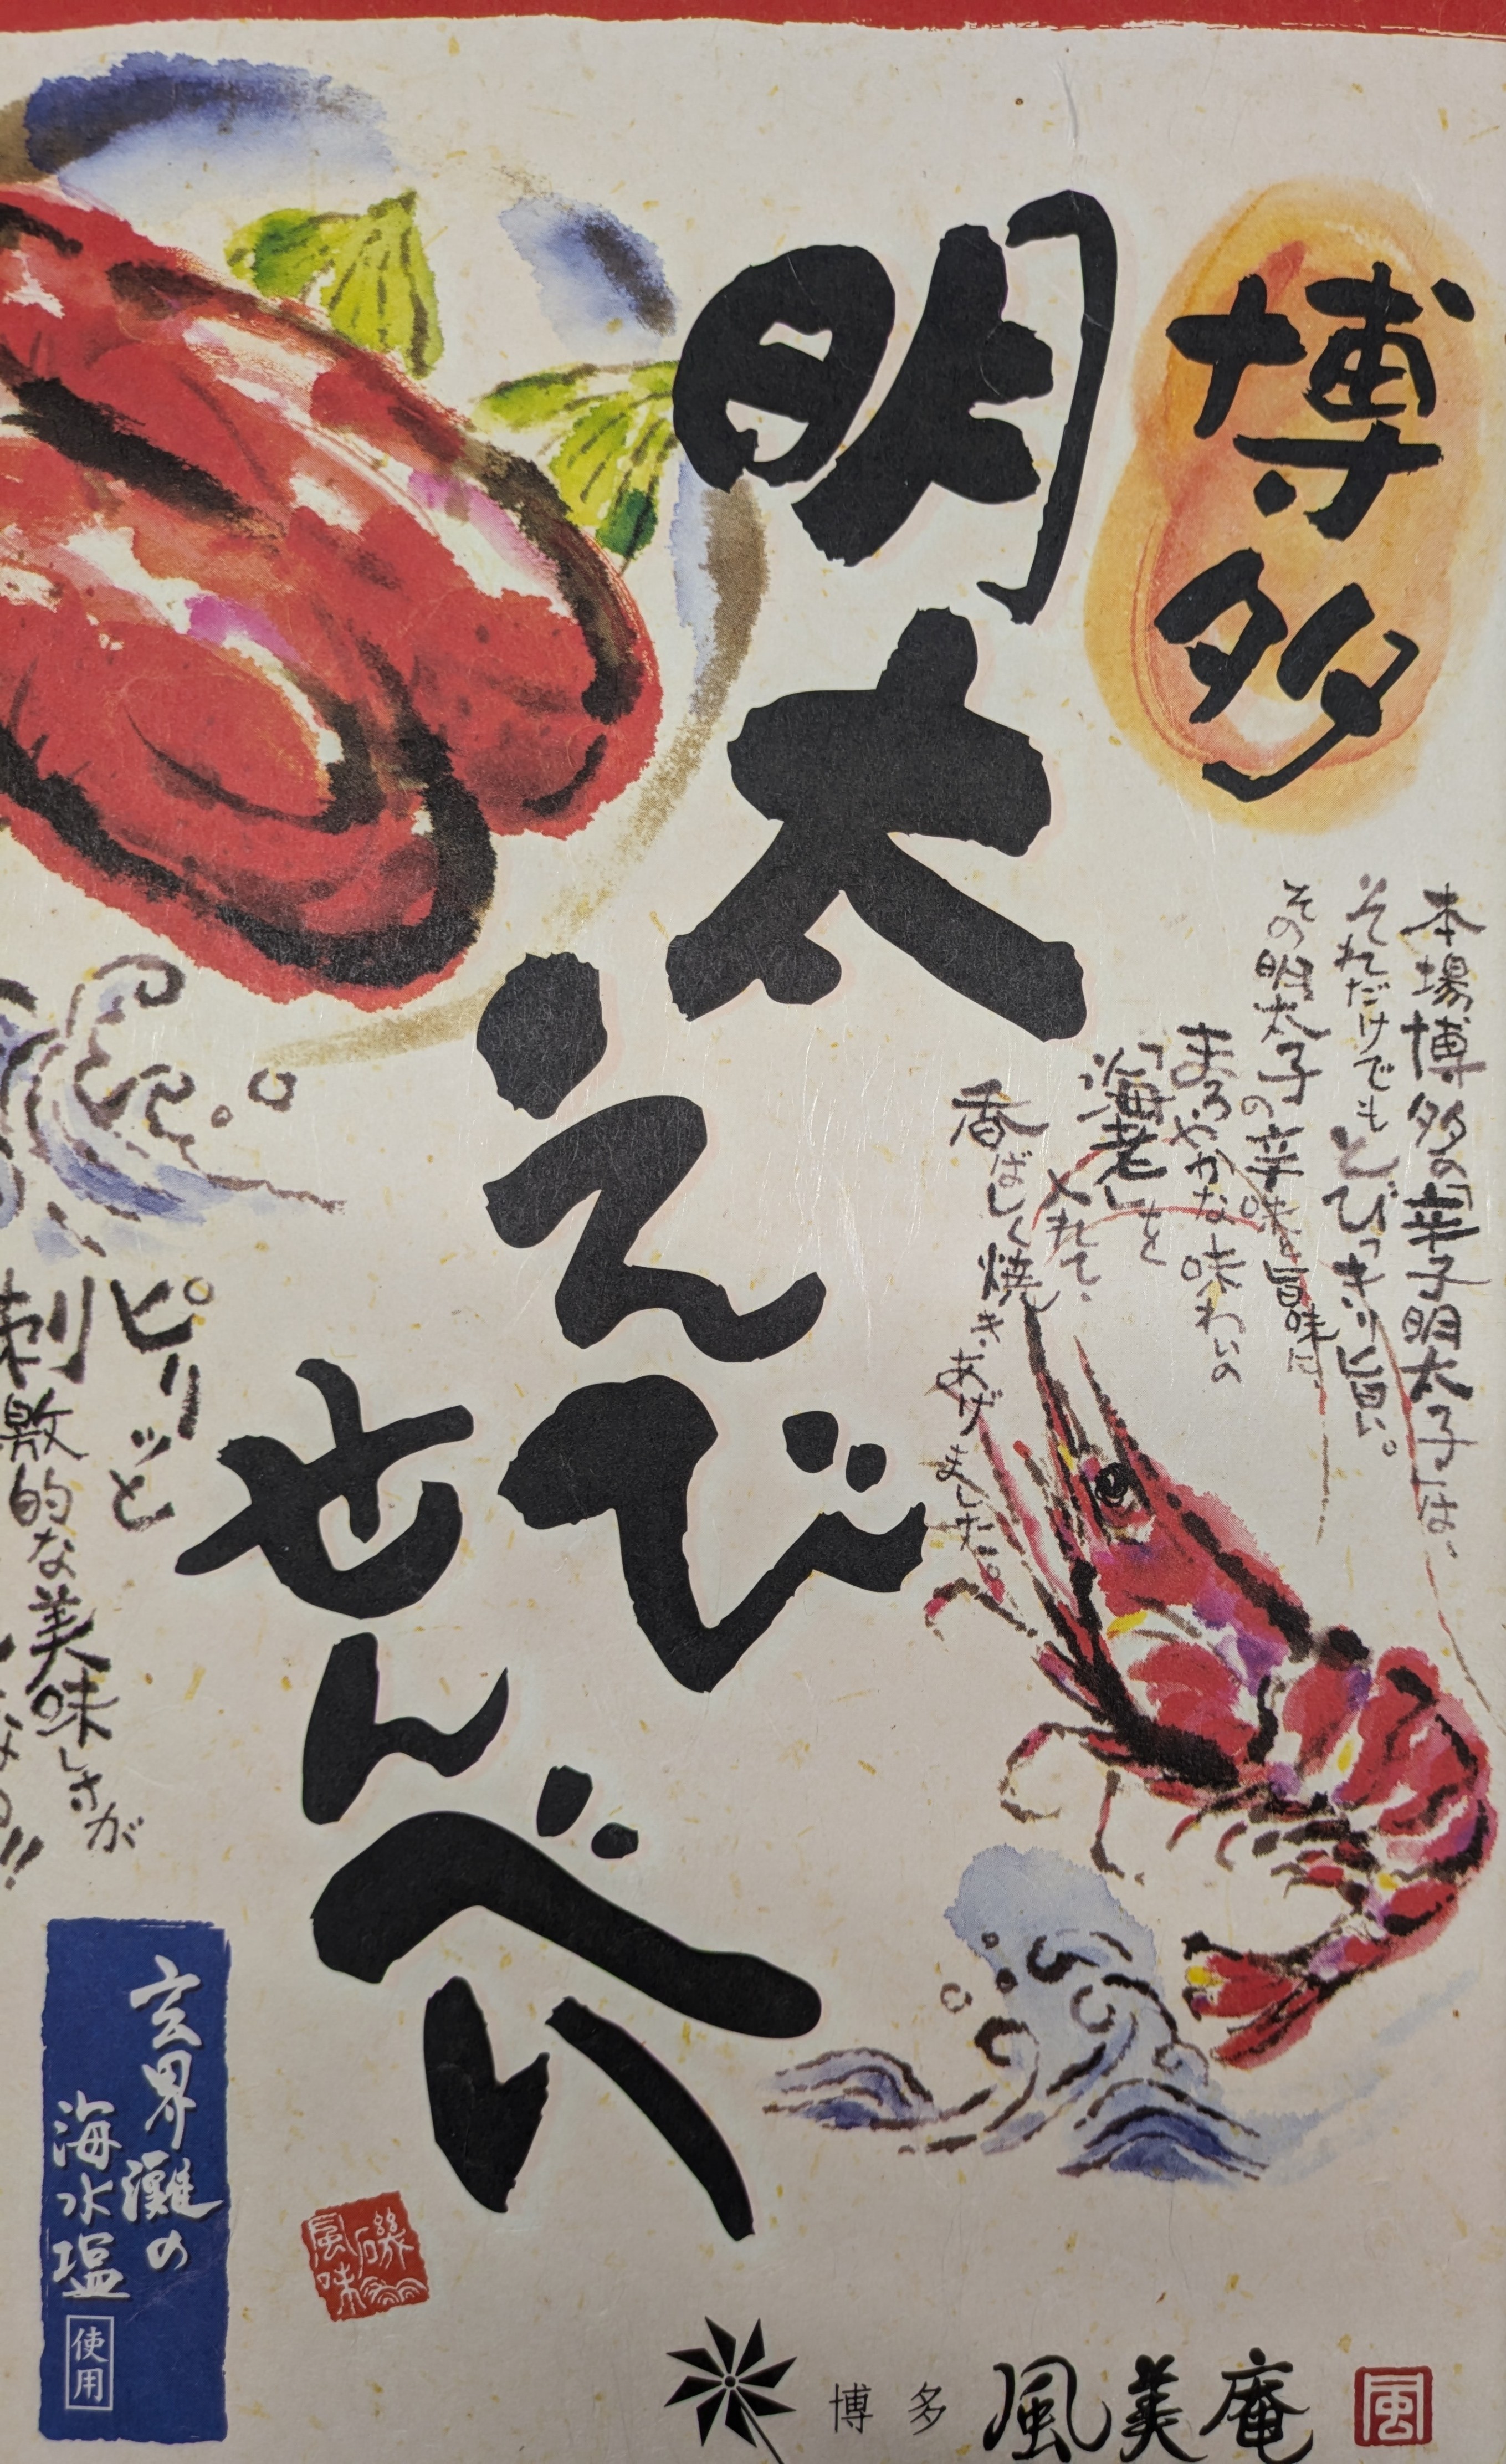 博多
明太
えび
せんべい
本場博多の「辛子明太子」は、
それだけでもとびっきり旨い。
その明太子の辛味と旨味に、
まろやかな味わいの
「海老」を
入れて、
香ばしく焼きあげました。
ピリッと
刺激的な美味しさが
玄界灘の
海水塩
使用
磯
風味
博多 風美庵
風